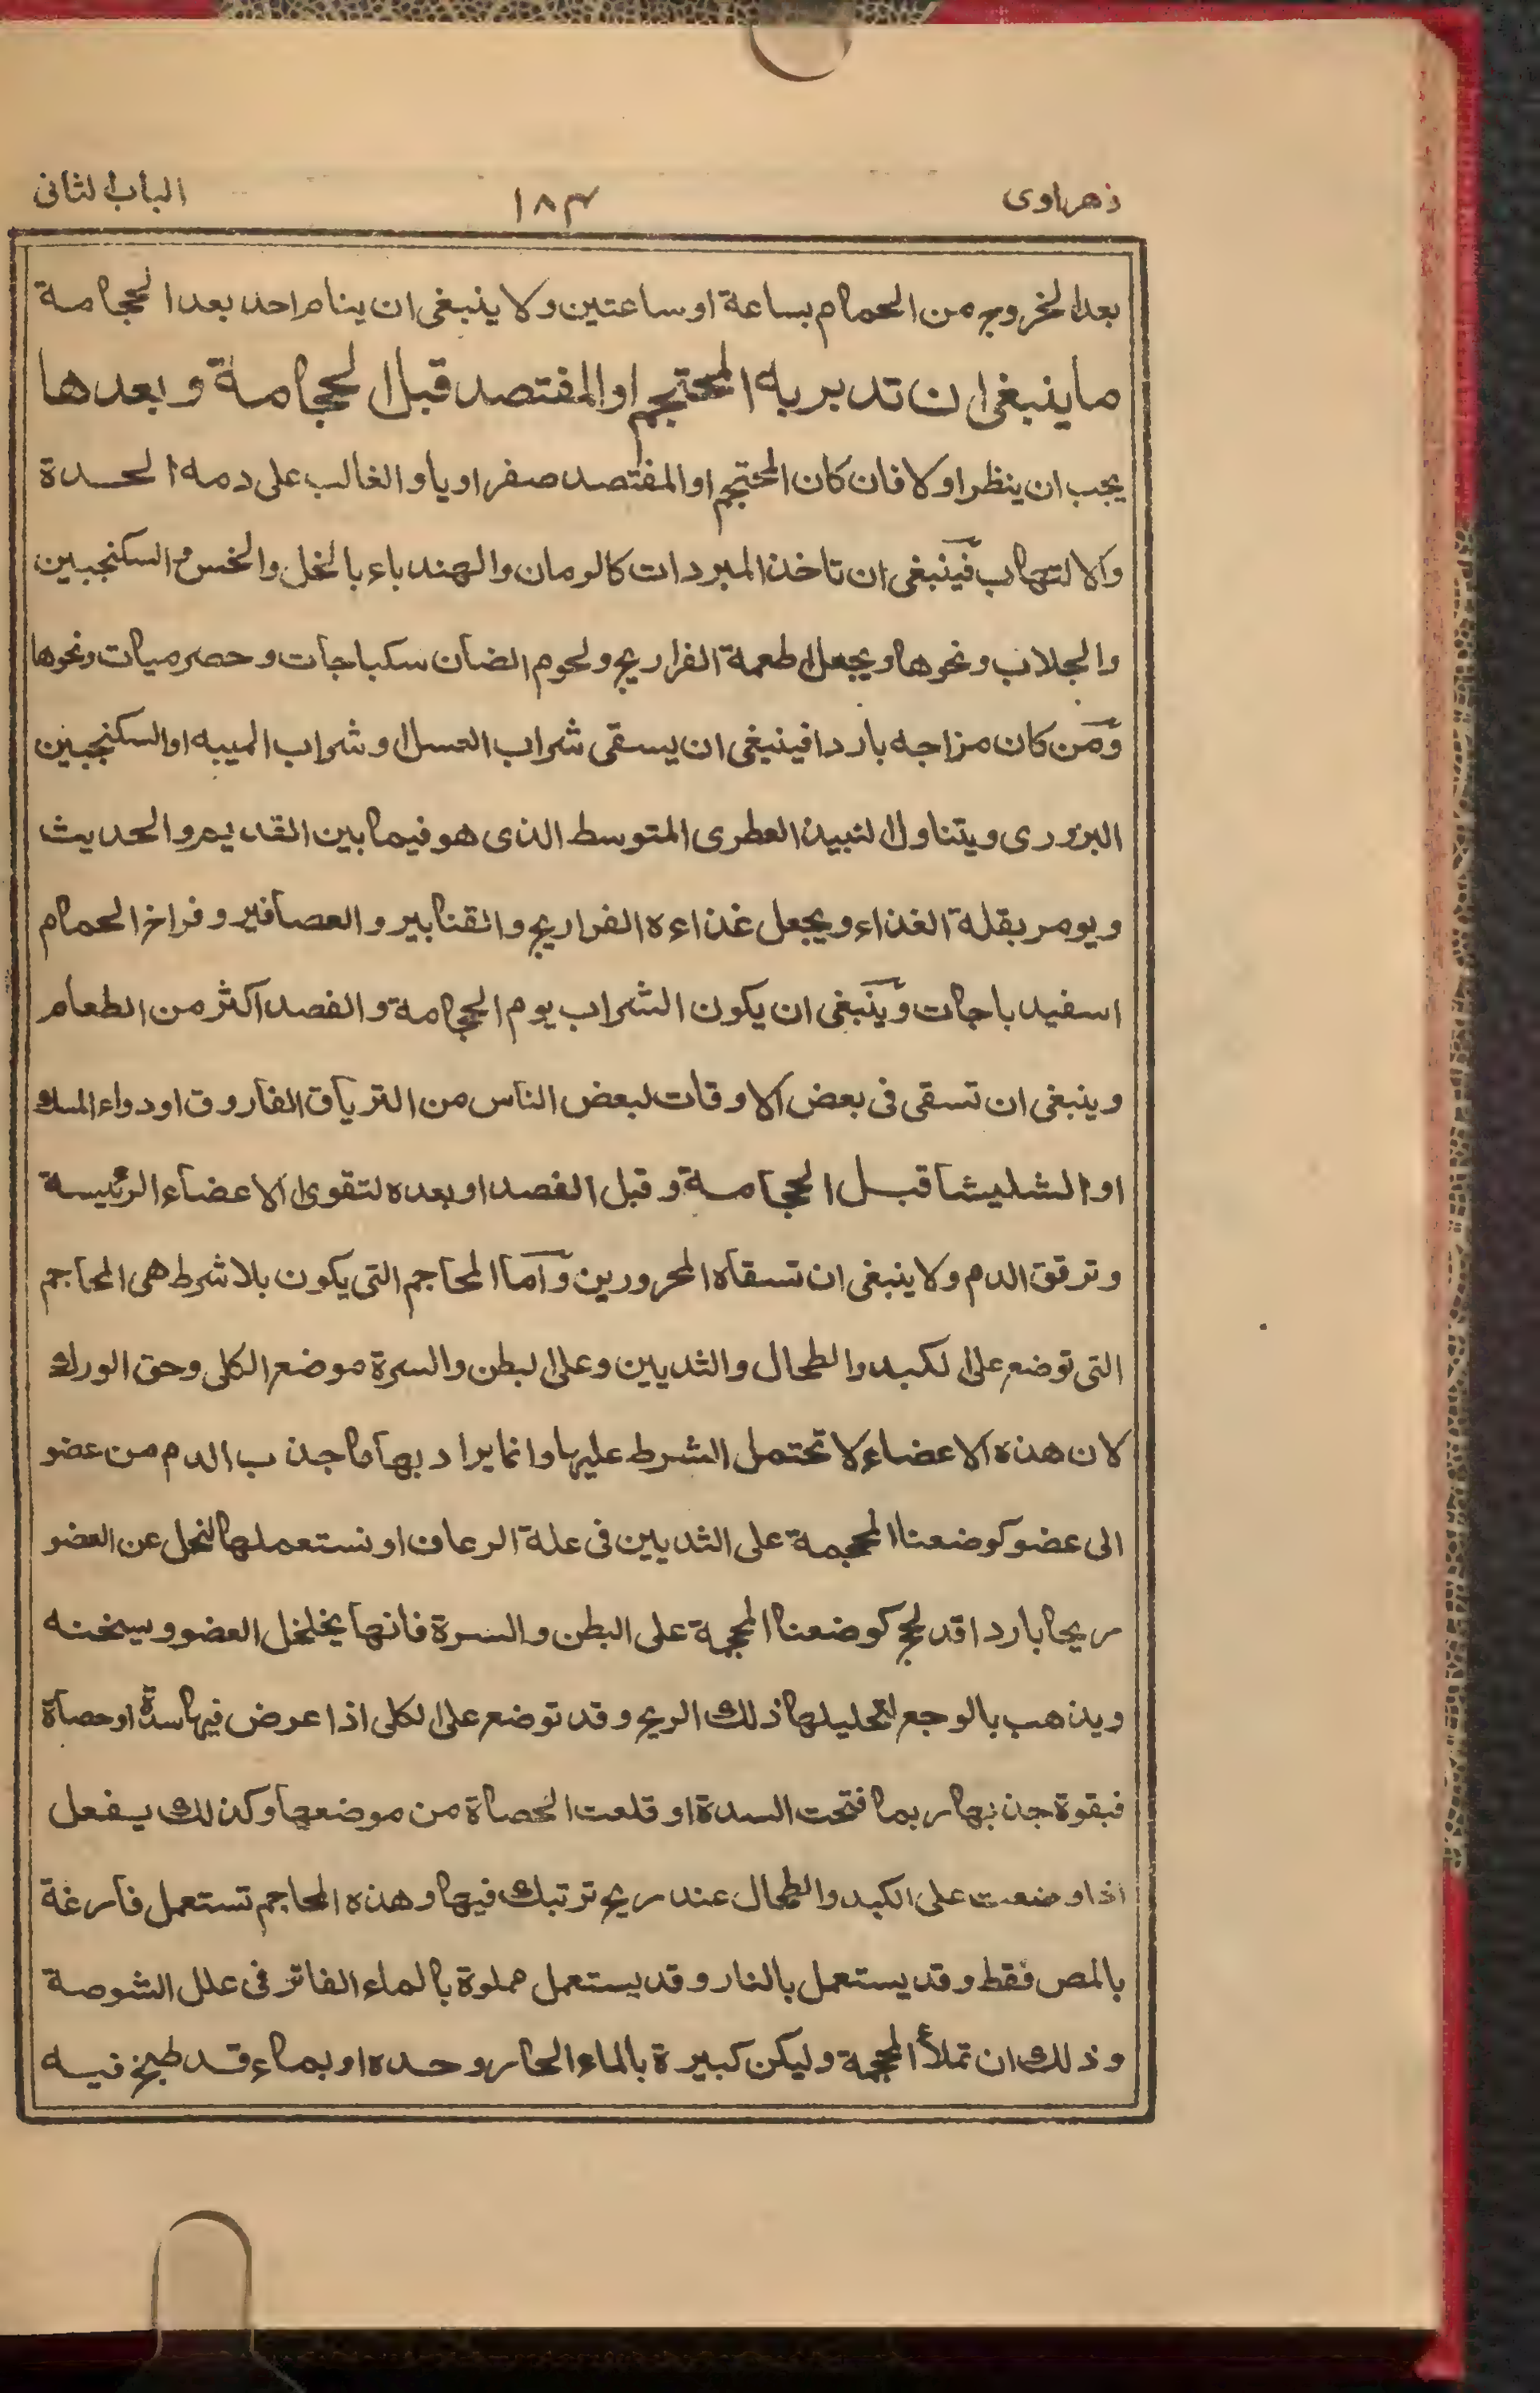 زهراوى ١٨٣ الباب الثانى
بعد الخروج من الحمام بساعة او ساعتين ولا ينبغى ان ينام احد بعد الحجامة
ما ينبغى ان تدبر به المحتجم او المفتصد قبل الحجامة و بعدها
يجب ان ينظر اولا فان كان المحتجم او المفتصد صفراويا و الغالب على دمه الحدة
والالتهاب فينبغى ان تاخذ المبردات كالرمان والهندباء بالخل والخس والسكنجبين
والجلاب ونحوها ويجعل اطعمة الفراريج ولحوم الضان سكباجات وحصرميات ونحوها
ومن كان مزاجه باردا فينبغى ان يسقى شراب العسل او شراب الميبه او السكنجبين
البزورى ويتناول النبيذ العطرى المتوسط الذى هو فيما بين القديم والحديث
ويومر بقلة الغذاء ويجعل غذاءه الفراريج والقنابير والعصافير وفراخ الحمام
اسفيدباجات وينبغى ان يكون الشراب يوم الحجامة والفصد اكثر من الطعام
وينبغى ان تسقى فى بعض الاوقات لبعض الناس من الترياق الفاروق او دواء المسك
او الشليشا قبل الحجامة و قبل الفصد او بعده لتقوى الاعضاء الرئيسة
وترقق الدم ولا ينبغى ان تسقاه المحرورين واما المحاجم التى يكون بلا شرط هى المحاجم
التى توضع على الكبد والطحال والثديين وعلى البطن والسرة موضع الكلى وحق الورك
لان هذه الاعضاء لا تحتمل الشرط عليها وانما يراد بها ما جذب الدم من عضو
الى عضو كوضعنا المحجمة على الثديين فى علة الرعاف او نستعملها لنحل عن العضو
ريحا باردا قد لحج كوضعنا المحجمة على البطن والسرة فانها يخلخل العضو ويسخنه
ويذهب بالوجع لتحليلها ذلك الريح وقد توضع على الكلى اذا عرض فيها سدة او حصاة
فبقوة جذبها ربما فتحت السدة او قلعت الحصاة من موضعها وكذلك يفعل
اذا وضعت على الكبد والطحال عند ريح ترتبك فيها وهذه المحاجم تستعمل فارغة
بالمص فقط وقد يستعمل بالنار وقد يستعمل مملوة بالماء الفاتر فى علل الشوصة
وذلك ان تملأ المحجمة وليكن كبيرة بالماء الحار وحده او بماء قد طبخ فيه